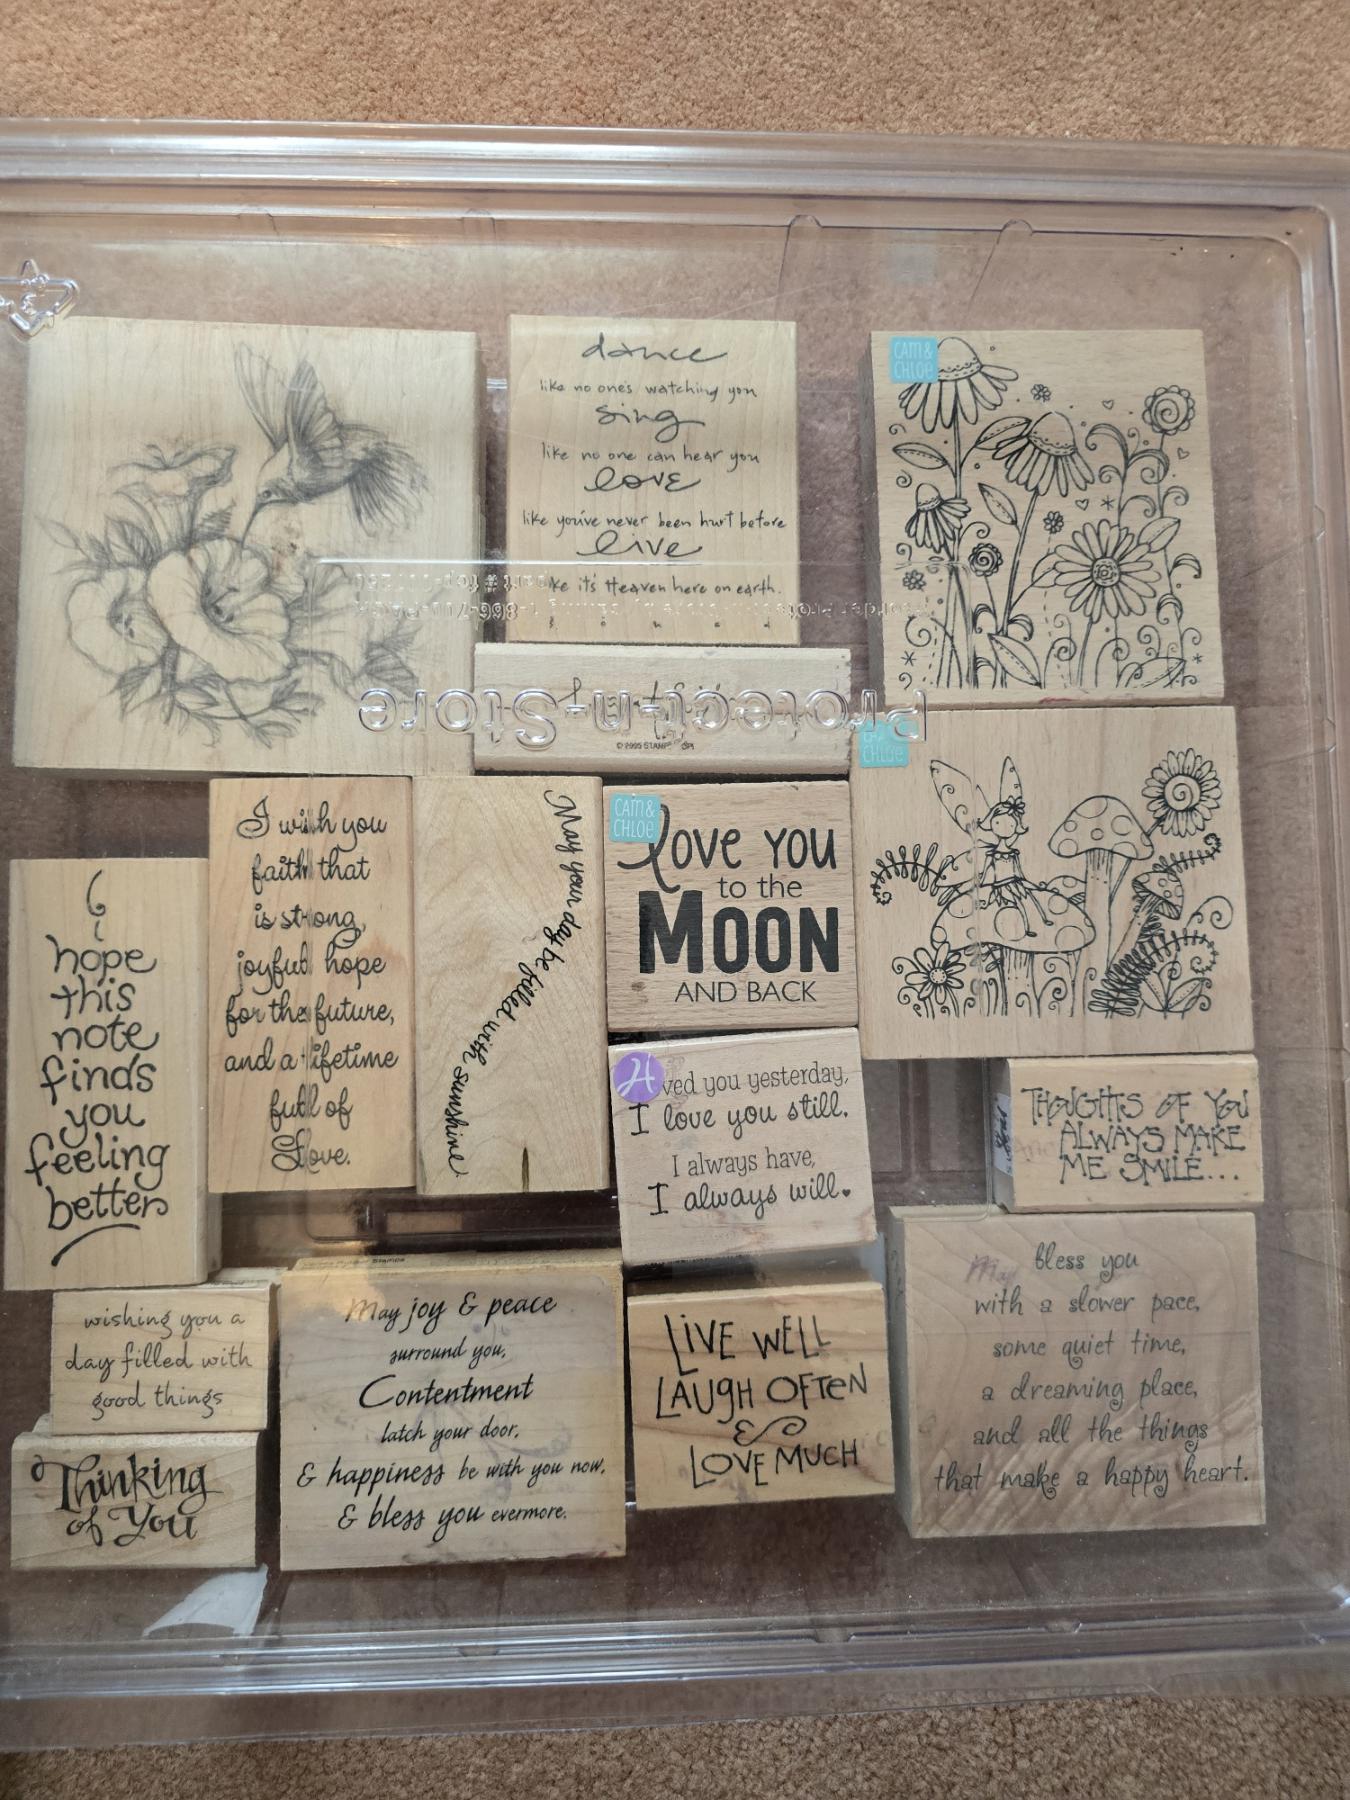 dance
like no one's watching you
sing
like no one can hear you
love
like you've never been hurt before
live
like it's Heaven here on earth.
CAM &
CHLOE
Protect-n-Store
© 2005 STAMPIN' UP!
CAM &
CHLOE
I wish you
faith that
is strong,
joyful hope
for the future,
and a lifetime
full of
love.
May your day be filled with sunshine
CAM &
CHLOE
love you
to the
MOON
AND BACK
I
hope
this
note
finds
you
feeling
better
H
ved you yesterday,
I love you still.
I always have,
I always will.
THOUGHTS OF YOU
ALWAYS MAKE
ME SMILE...
wishing you a
day filled with
good things
Thinking
of You
May joy & peace
surround you,
Contentment
latch your door,
& happiness be with you now,
& bless you evermore.
LIVE WELL
LAUGH OFTEN
&
LOVE MUCH
May bless you
with a slower pace,
some quiet time,
a dreaming place,
and all the things
that make a happy heart.